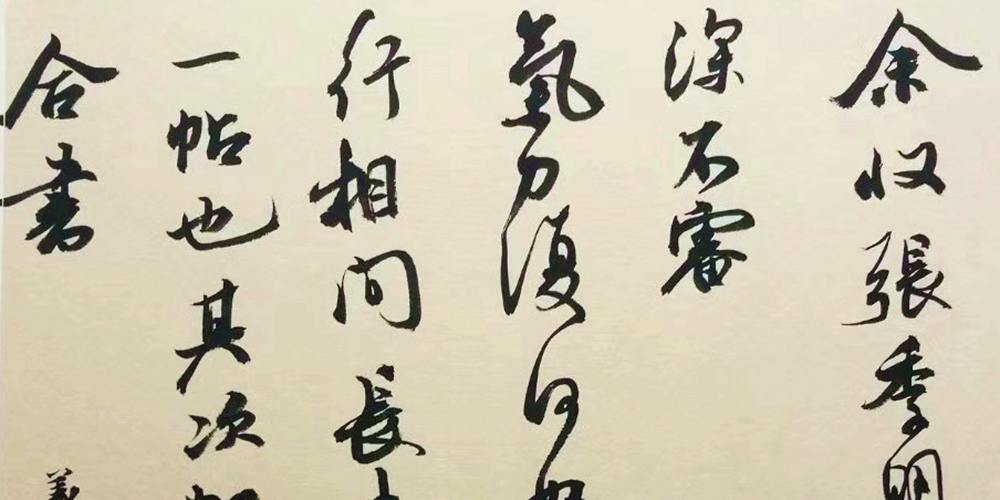 余收張季明
深不審
氣力復何如
行相間長
一帖也其次
合書